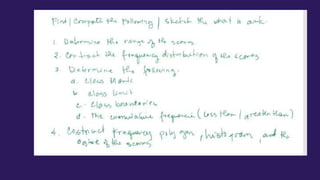 Find/Compute the following / sketch the what is ask.
1. Determine the range of the scores
2. Construct the frequency distribution of the scores
3. Determine the following:
a. Class Marks
b. class limit
c. Class boundaries
d. The cumulative frequencies (less than / greater than)
4. Construct frequency polygon, histogram, and the
Ogive of the scores